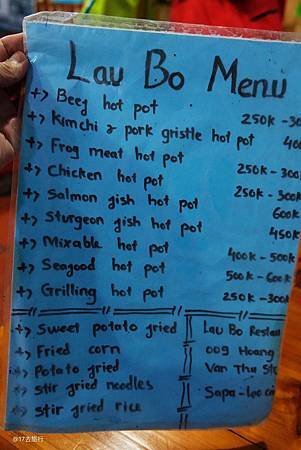 Lau Bo Menu
+> Beeg hot pot 250K-30
+> Kimchi & pork gristle hot pot 400
+> Frog meat hot pot
+> Chicken hot pot 250K-300k
+> Salmon gish hot pot 250K-300
+> Sturgeon gish hot pot 600k
+> Mixable hot pot 450k
+> Seagood hot pot 400k-500k
500k-600k
+> Grilling hot pot 250k-300k
+> Sweet potato gried
+> Fried corn
+> Potato gried
+> stir gried noodles
+> stir gried rice
Lau Bo Restau
009 Hoang
Van Thu Ste
Sapa-Lao ca
@17去旅行